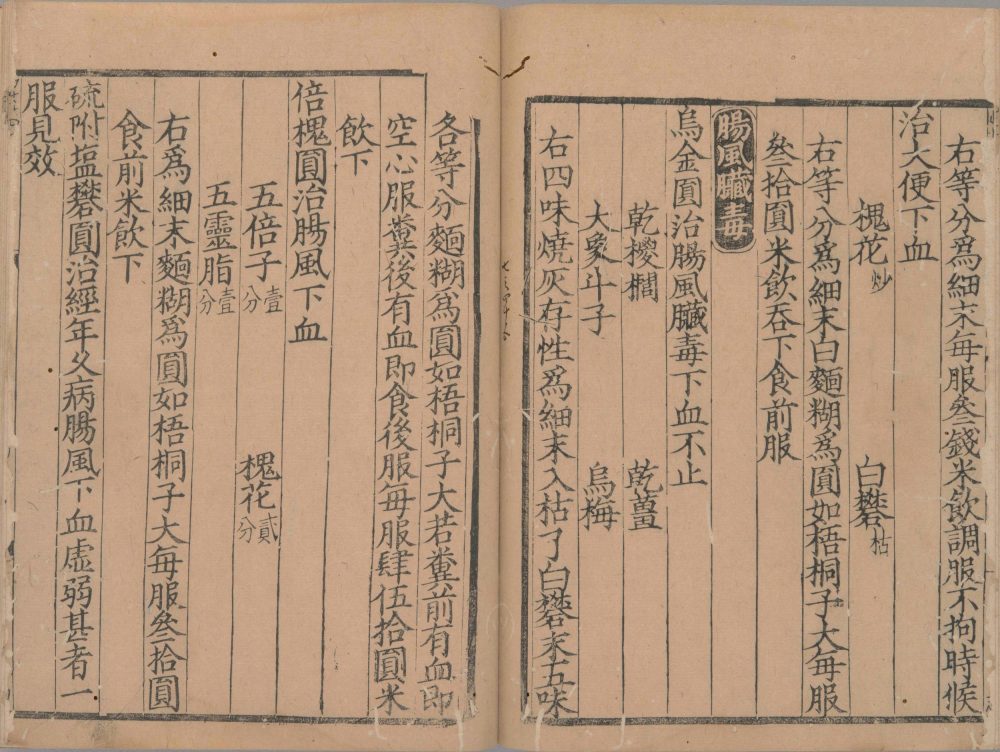 右等分爲細末每服叄錢米飲調服不拘時候
治大便下血
槐花炒 白礬枯
右等分爲細末白麵糊爲圓如梧桐子大每服
叄拾圓米飲吞下食前服
腸風臟毒
烏金圓治腸風臟毒下血不止
乾椶櫚 乾薑
大象斗子 烏梅
右四味燒灰存性爲細末入枯了白礬末五味
各等分麵糊爲圓如梧桐子大若糞前有血即
空心服糞後有血即食後服每服肆伍拾圓米
飲下
倍槐圓治腸風下血
五倍子壹分 槐花貳分
五靈脂壹分
右爲細末麵糊爲圓如梧桐子大每服叄拾圓
食前米飲下
硫附塩礬圓治經年久病腸風下血虛弱甚者一
服見效